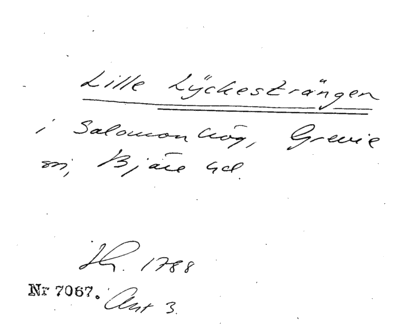 Lille Lÿckesträngen
i Salomonhög, Grevie
sn, Bjäre hd.
Sk. 1788
Nr 7067. Akt 3.